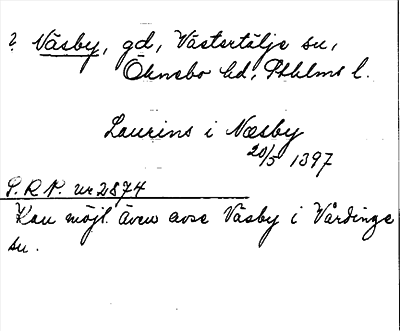 ? Väsby, gd, Västertälje sn,
Öknebo hd, Sthlms l.
Laurins i Næsby
20/5 1397
S.R.P. nr 2874
Kan möjl. även avse Väsby i Vårdinge
sn.